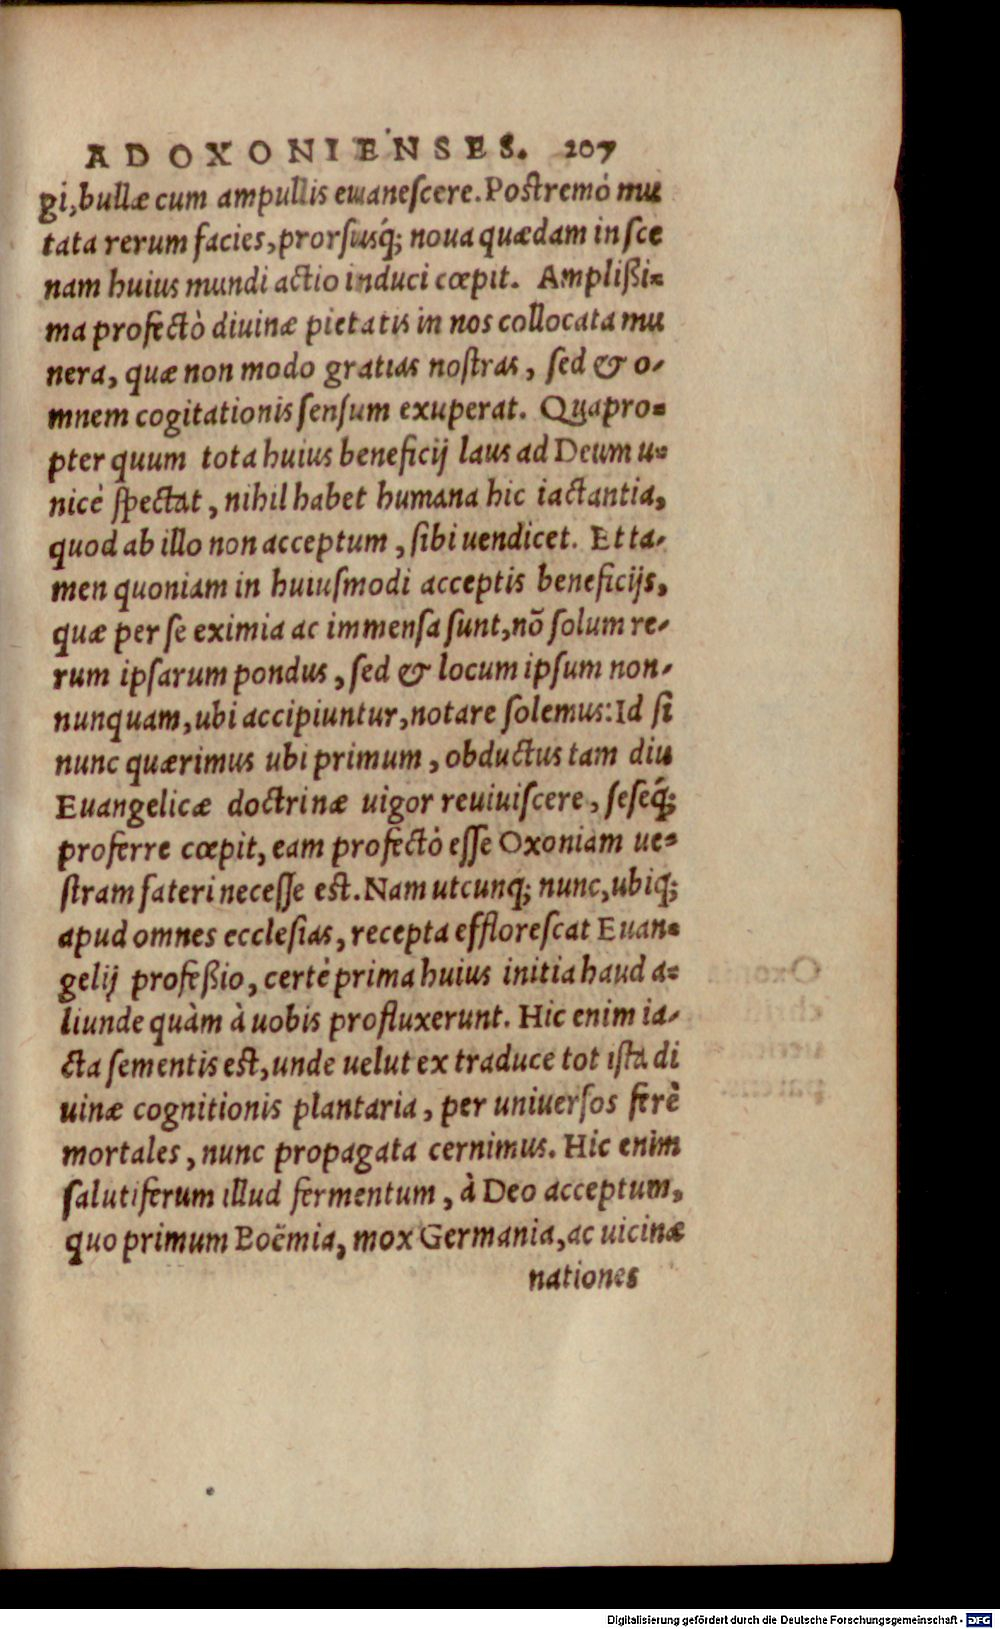 AD OXONIENSES. 207
gi, bullæ cum ampullis euanescere. Postremò mu
tata rerum facies, prorsusq́; noua quædam in sce
nam huius mundi actio induci cœpit. Amplißi=
ma profectò diuinæ pietatis in nos collocata mu
nera, quæ non modo gratias nostras, sed & o-
mnem cogitationis sensum exuperat. Quapro=
pter quum tota huius beneficij laus ad Deum u=
nicè spectat, nihil habet humana hic iactantia,
quod ab illo non acceptum, sibi uendicet. Et ta-
men quoniam in huiusmodi acceptis beneficijs,
quæ per se eximia ac immensa sunt, nõ solum re-
rum ipsarum pondus, sed & locum ipsum non-
nunquam, ubi accipiuntur, notare solemus: Id si
nunc quærimus ubi primum, obductus tam diu
Euangelicæ doctrinæ uigor reuiuiscere, seseq́;
proferre cœpit, eam profectò esse Oxoniam ue=
stram fateri necesse est. Nam utcunq; nunc, ubiq;
apud omnes ecclesias, recepta efflorescat Euan=
gelij profeßio, certè prima huius initia haud a=
liunde quàm à uobis profluxerunt. Hic enim ia-
cta sementis est, unde uelut ex traduce tot ista di
uinæ cognitionis plantaria, per uniuersos ferè
mortales, nunc propagata cernimus. Hic enim
salutiferum illud fermentum, à Deo acceptum,
quo primum Boëmia, mox Germania, ac uicinæ
nationes
Digitalisierung gefördert durch die Deutsche Forschungsgemeinschaft - DFG